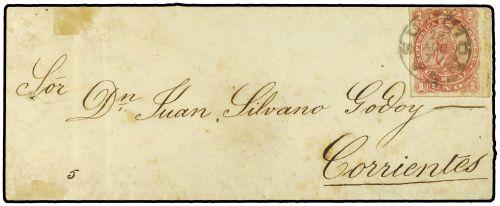 Sór
Dn Juan Silvano Godoy
Corrientes
5
1 UNO 1